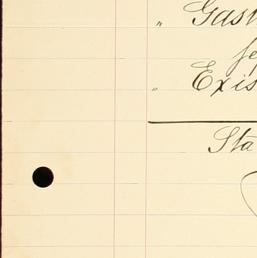 " Gast
fe
" Exis
Sta